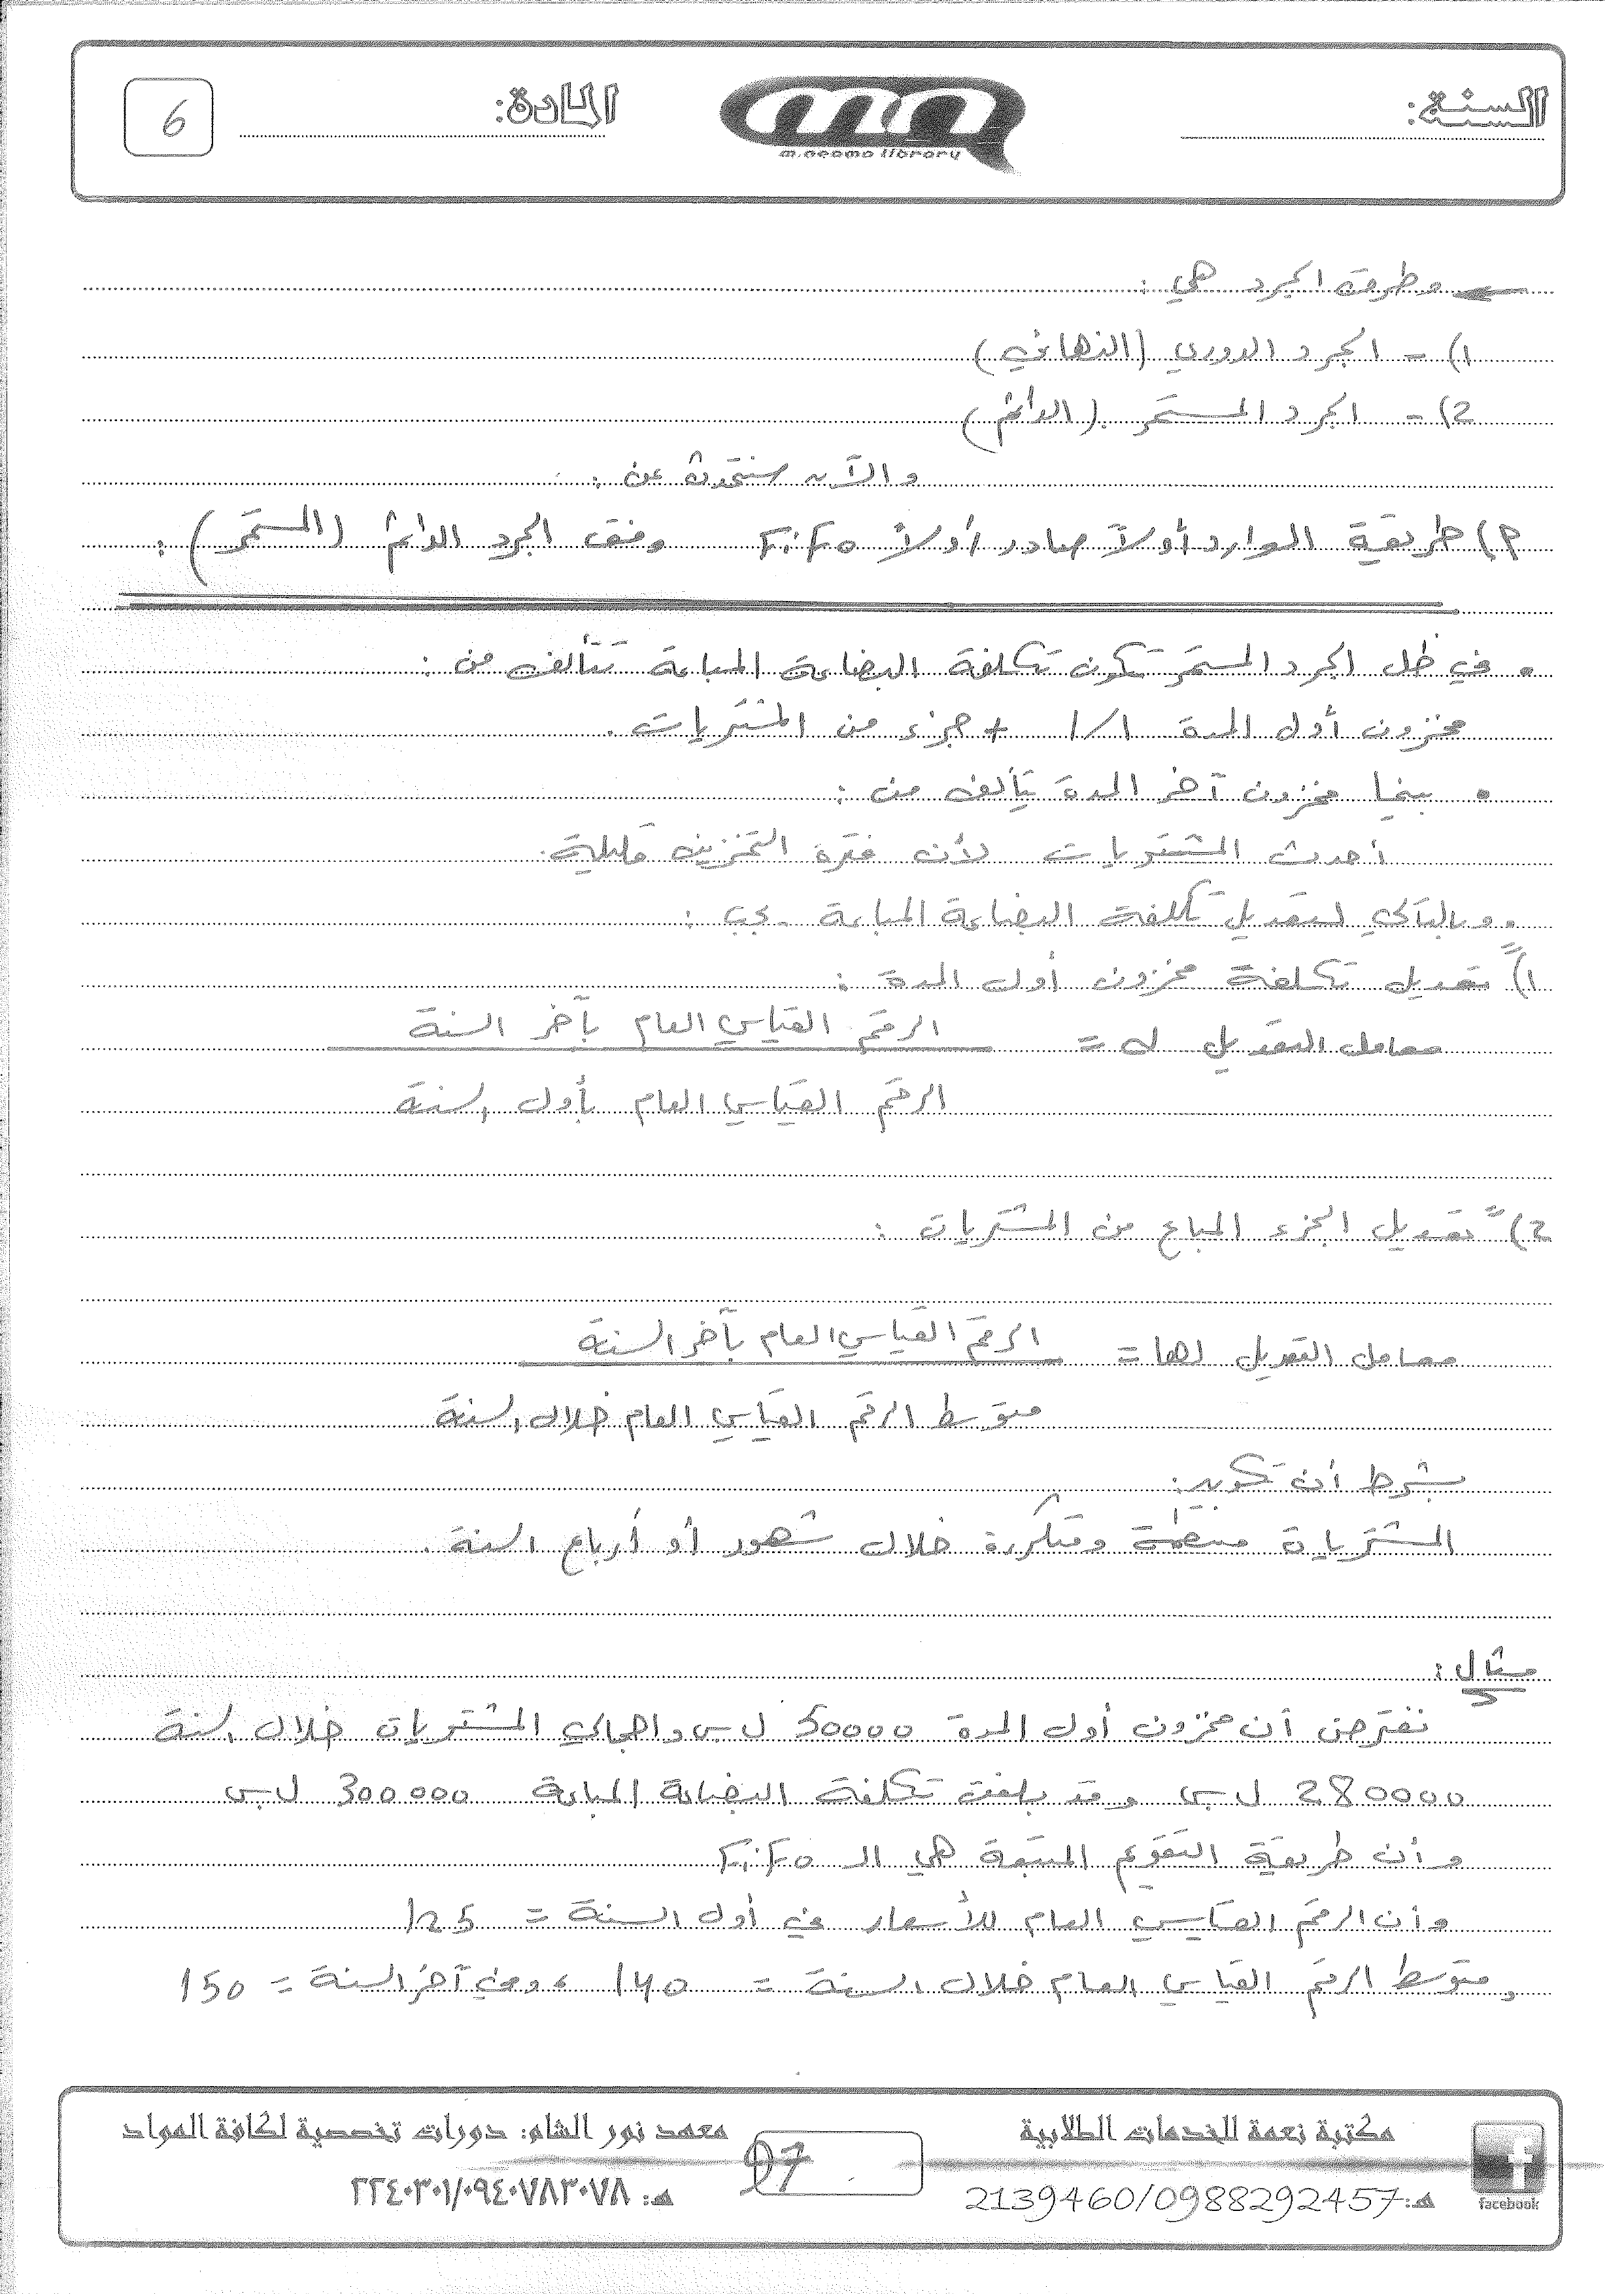 السنة:
m.neama library
المادة:
6
وطرق الجرد هي :
1) - الجرد الدوري (النهائي)
2) - الجرد المستمر (الدائم)
والآن سنتحدث عن :
م) طريقة الوارد أولاً صادر أولاً FiFo وفق الجرد الدائم (المستمر) :
• في ظل الجرد المستمر تكون تكلفة البضاعة المباعة تتألف من :
مخزون أول المدة 1/1 + جزء من المشتريات .
• بينما مخزون آخر المدة يتألف من :
أحدث المشتريات لأن فترة التخزين قليلة .
• وبالتالي لتعديل تكلفة البضاعة المباعة يجب :
1)ً تعديل تكلفة مخزون أول المدة :
معامل التعديل له = الرقم القياسي العام بآخر السنة
الرقم القياسي العام بأول السنة
2)ً تعديل الجزء المباع من المشتريات :
معامل التعديل لها = الرقم القياسي العام بآخر السنة
متوسط الرقم القياسي العام خلال السنة
بشرط أن تكون :
المشتريات منتظمة ومتكررة خلال شهور أو أرباع السنة .
مثال :
نفترض أن مخزون أول المدة 50000 ل.س واجمالي المشتريات خلال السنة
280000 ل.س وقد بلغت تكلفة البضاعة المباعة 300000 ل.س
وأن طريقة التقويم المتبعة هي الـ FiFo
وأن الرقم القياسي العام للأسعار في أول السنة = 125
ومتوسط الرقم القياسي العام خلال السنة = 140 ، وفي آخر السنة = 150
مكتبة نعمة للخدمات الطلابية
هـ: 2139460/0988292457
facebook
97
معهد نور الشام: دورات تخصصية لكافة المواد
هـ: ٢٢٤٠٣٠١/٠٩٤٠٧٨٣٠٧٨